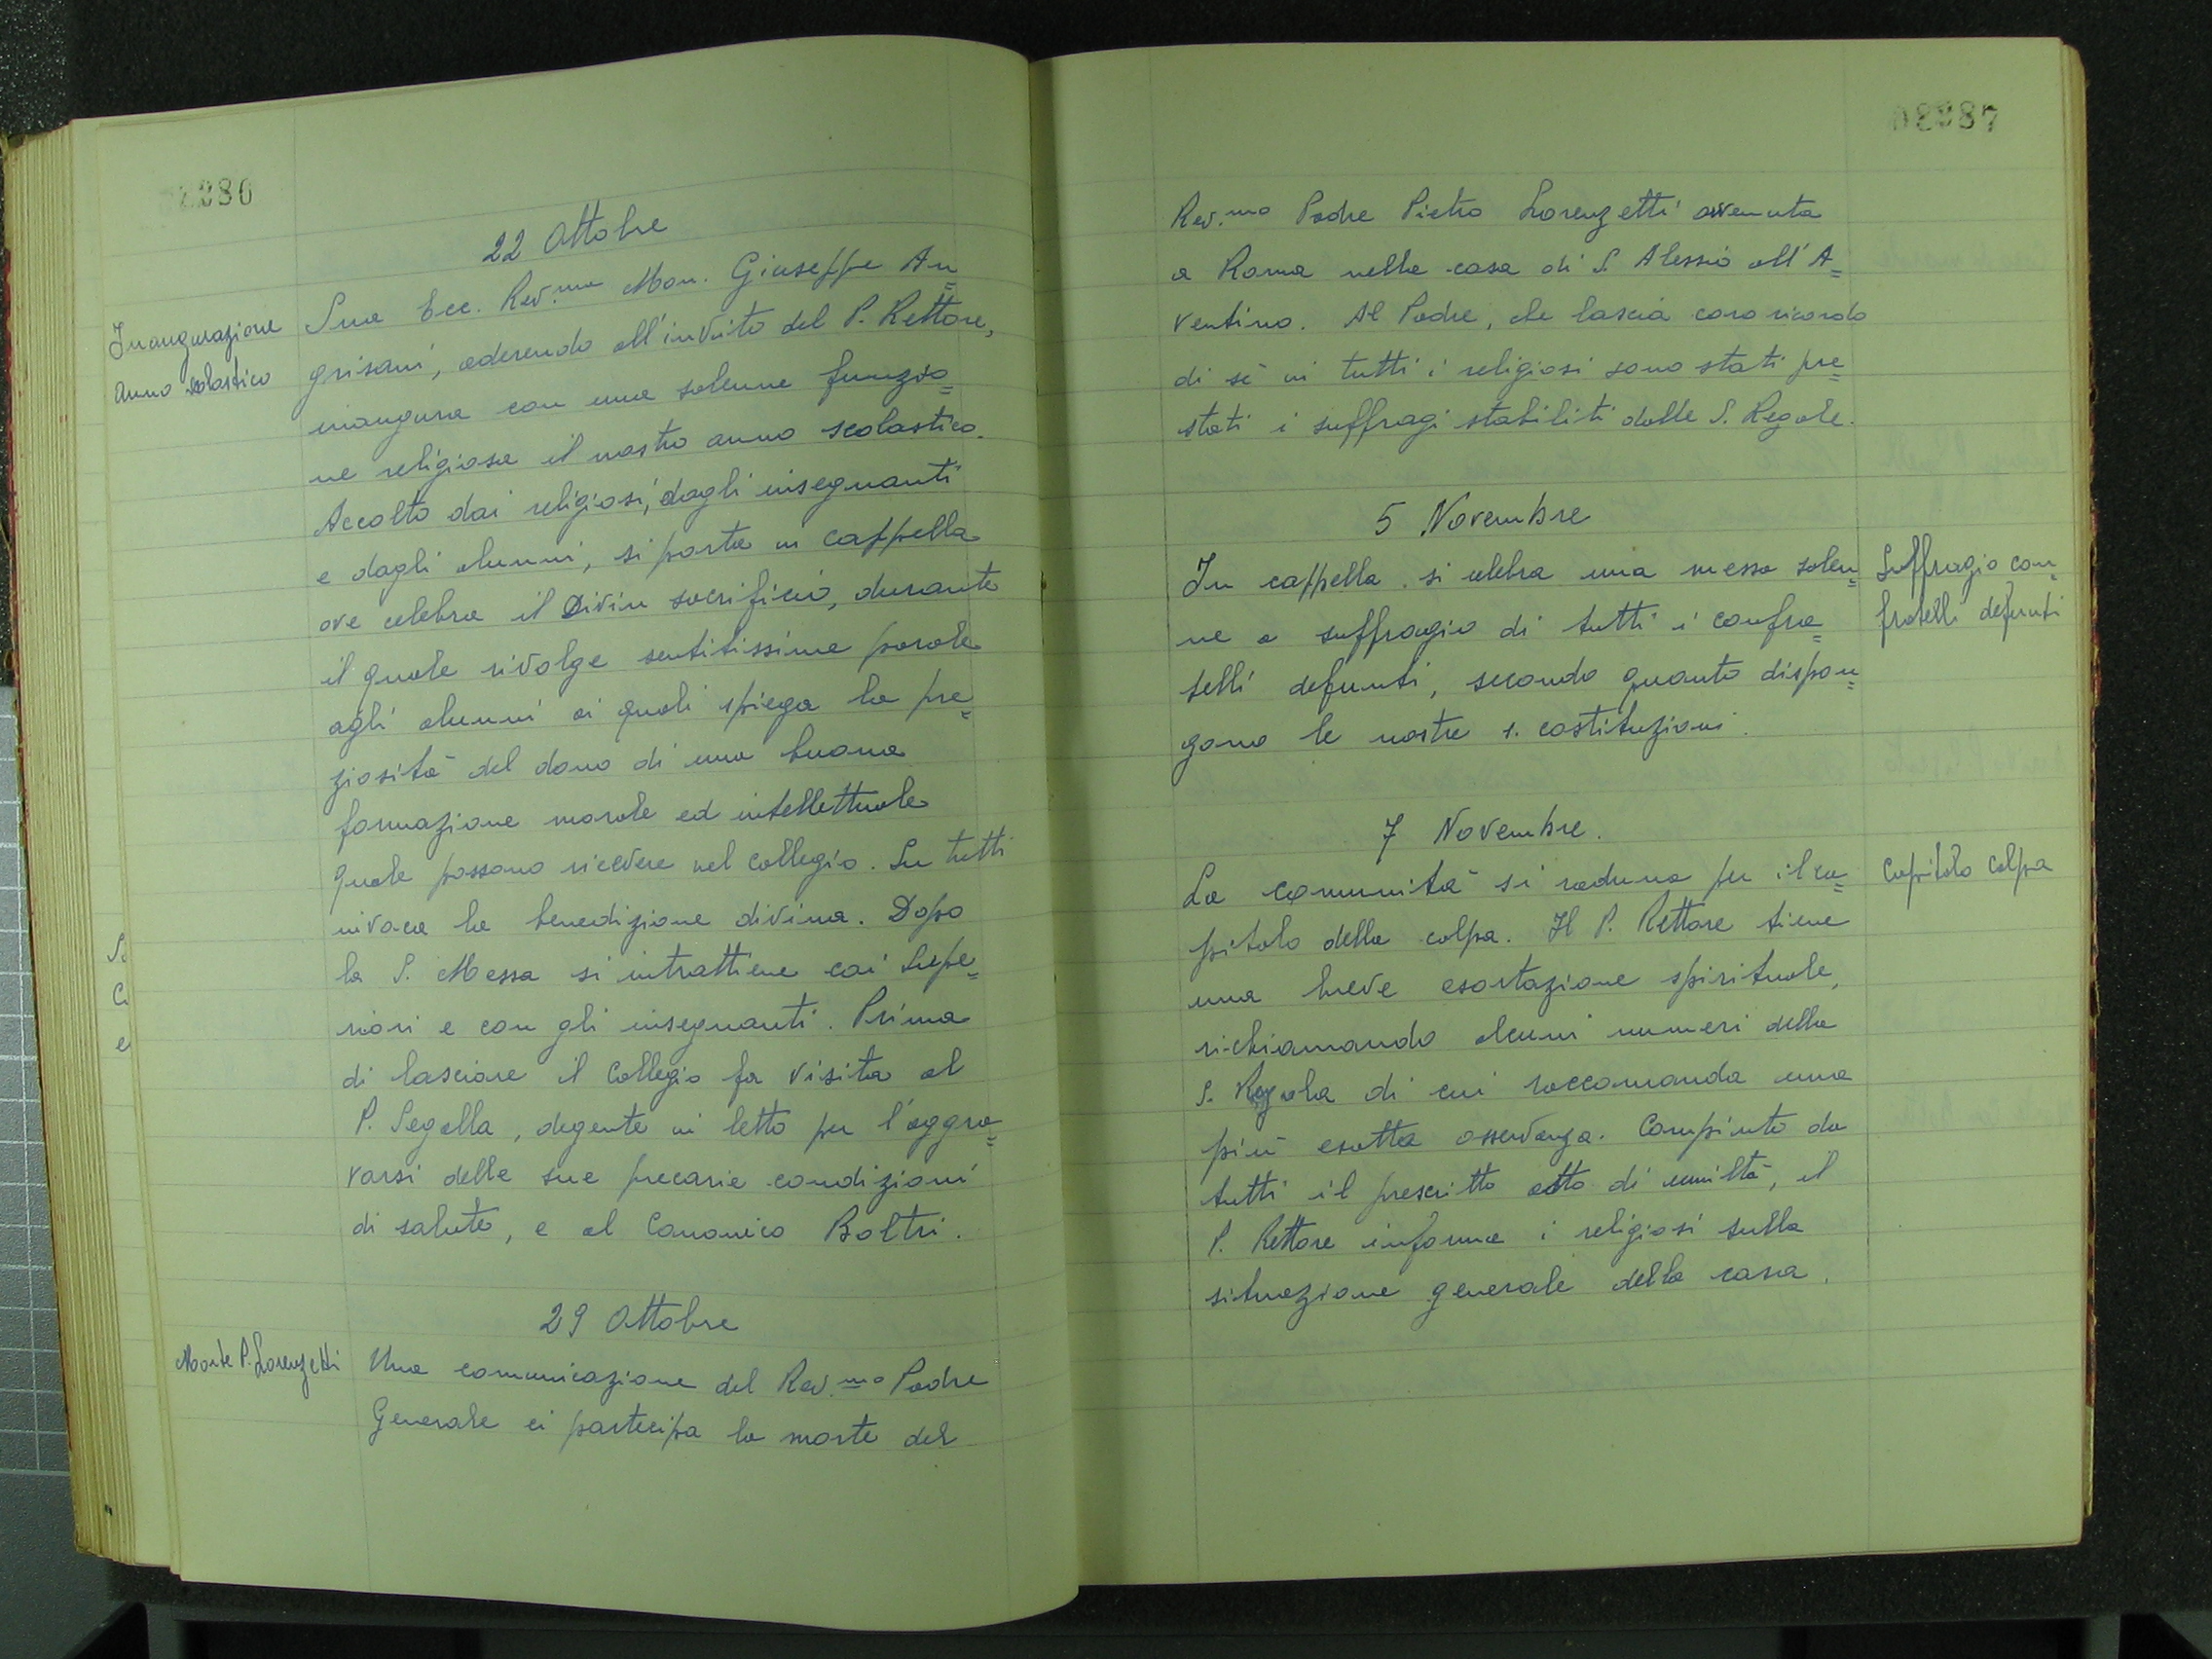 22 Ottobre
Inaugurazione
Anno scolastico
Sua Ecc. Rev.mo Mon. Giuseppe An=
grisani, aderendo all'invito del P. Rettore,
inaugura con una solenne funzio=
ne religiosa il nostro anno scolastico.
Accolto dai religiosi, dagli insegnanti
e dagli alunni, si porta in cappella
ove celebra il Divin sacrificio, durante
il quale rivolge sentitissime parole
agli alunni ai quali spiega la pre=
ziosità del dono di una buona
formazione morale ed intellettuale
quale possono ricevere nel collegio. Su tutti
invoca la benedizione divina. Dopo
la S. Messa si intrattiene coi Supe=
riori e con gli insegnanti. Prima
di lasciare il Collegio fa visita al
P. Segalla, degente in letto per l'aggra=
varsi delle sue precarie condizioni
di salute, e al Canonico Boltri.
29 Ottobre
Morte P. Lorenzetti
Una comunicazione del Rev.mo Padre
Generale ci partecipa la morte del
02987
Rev.mo Padre Pietro Lorenzetti avvenuta
a Roma nella casa di S. Alessio all'A=
ventino. Al Padre, che lascia caro ricordo
di sè in tutti i religiosi sono stati pre=
stati i suffragi stabiliti dalle S. Regole.
5 Novembre
In cappella si celebra una messa solen=
ne a suffragio di tutti i confra=
telli defunti, secondo quanto dispon=
gono le nostre s. costituzioni.
Suffragio con=
fratelli defunti
7 Novembre.
La comunità si raduna per il ca=
pitolo della colpa. Il P. Rettore tiene
una breve esortazione spirituale,
richiamando alcuni numeri della
S. Regola di cui raccomanda una
più esatta osservanza. Compiuto da
tutti il prescritto atto di umiltà, il
P. Rettore informa i religiosi sulla
situazione generale della casa.
Capitolo colpa